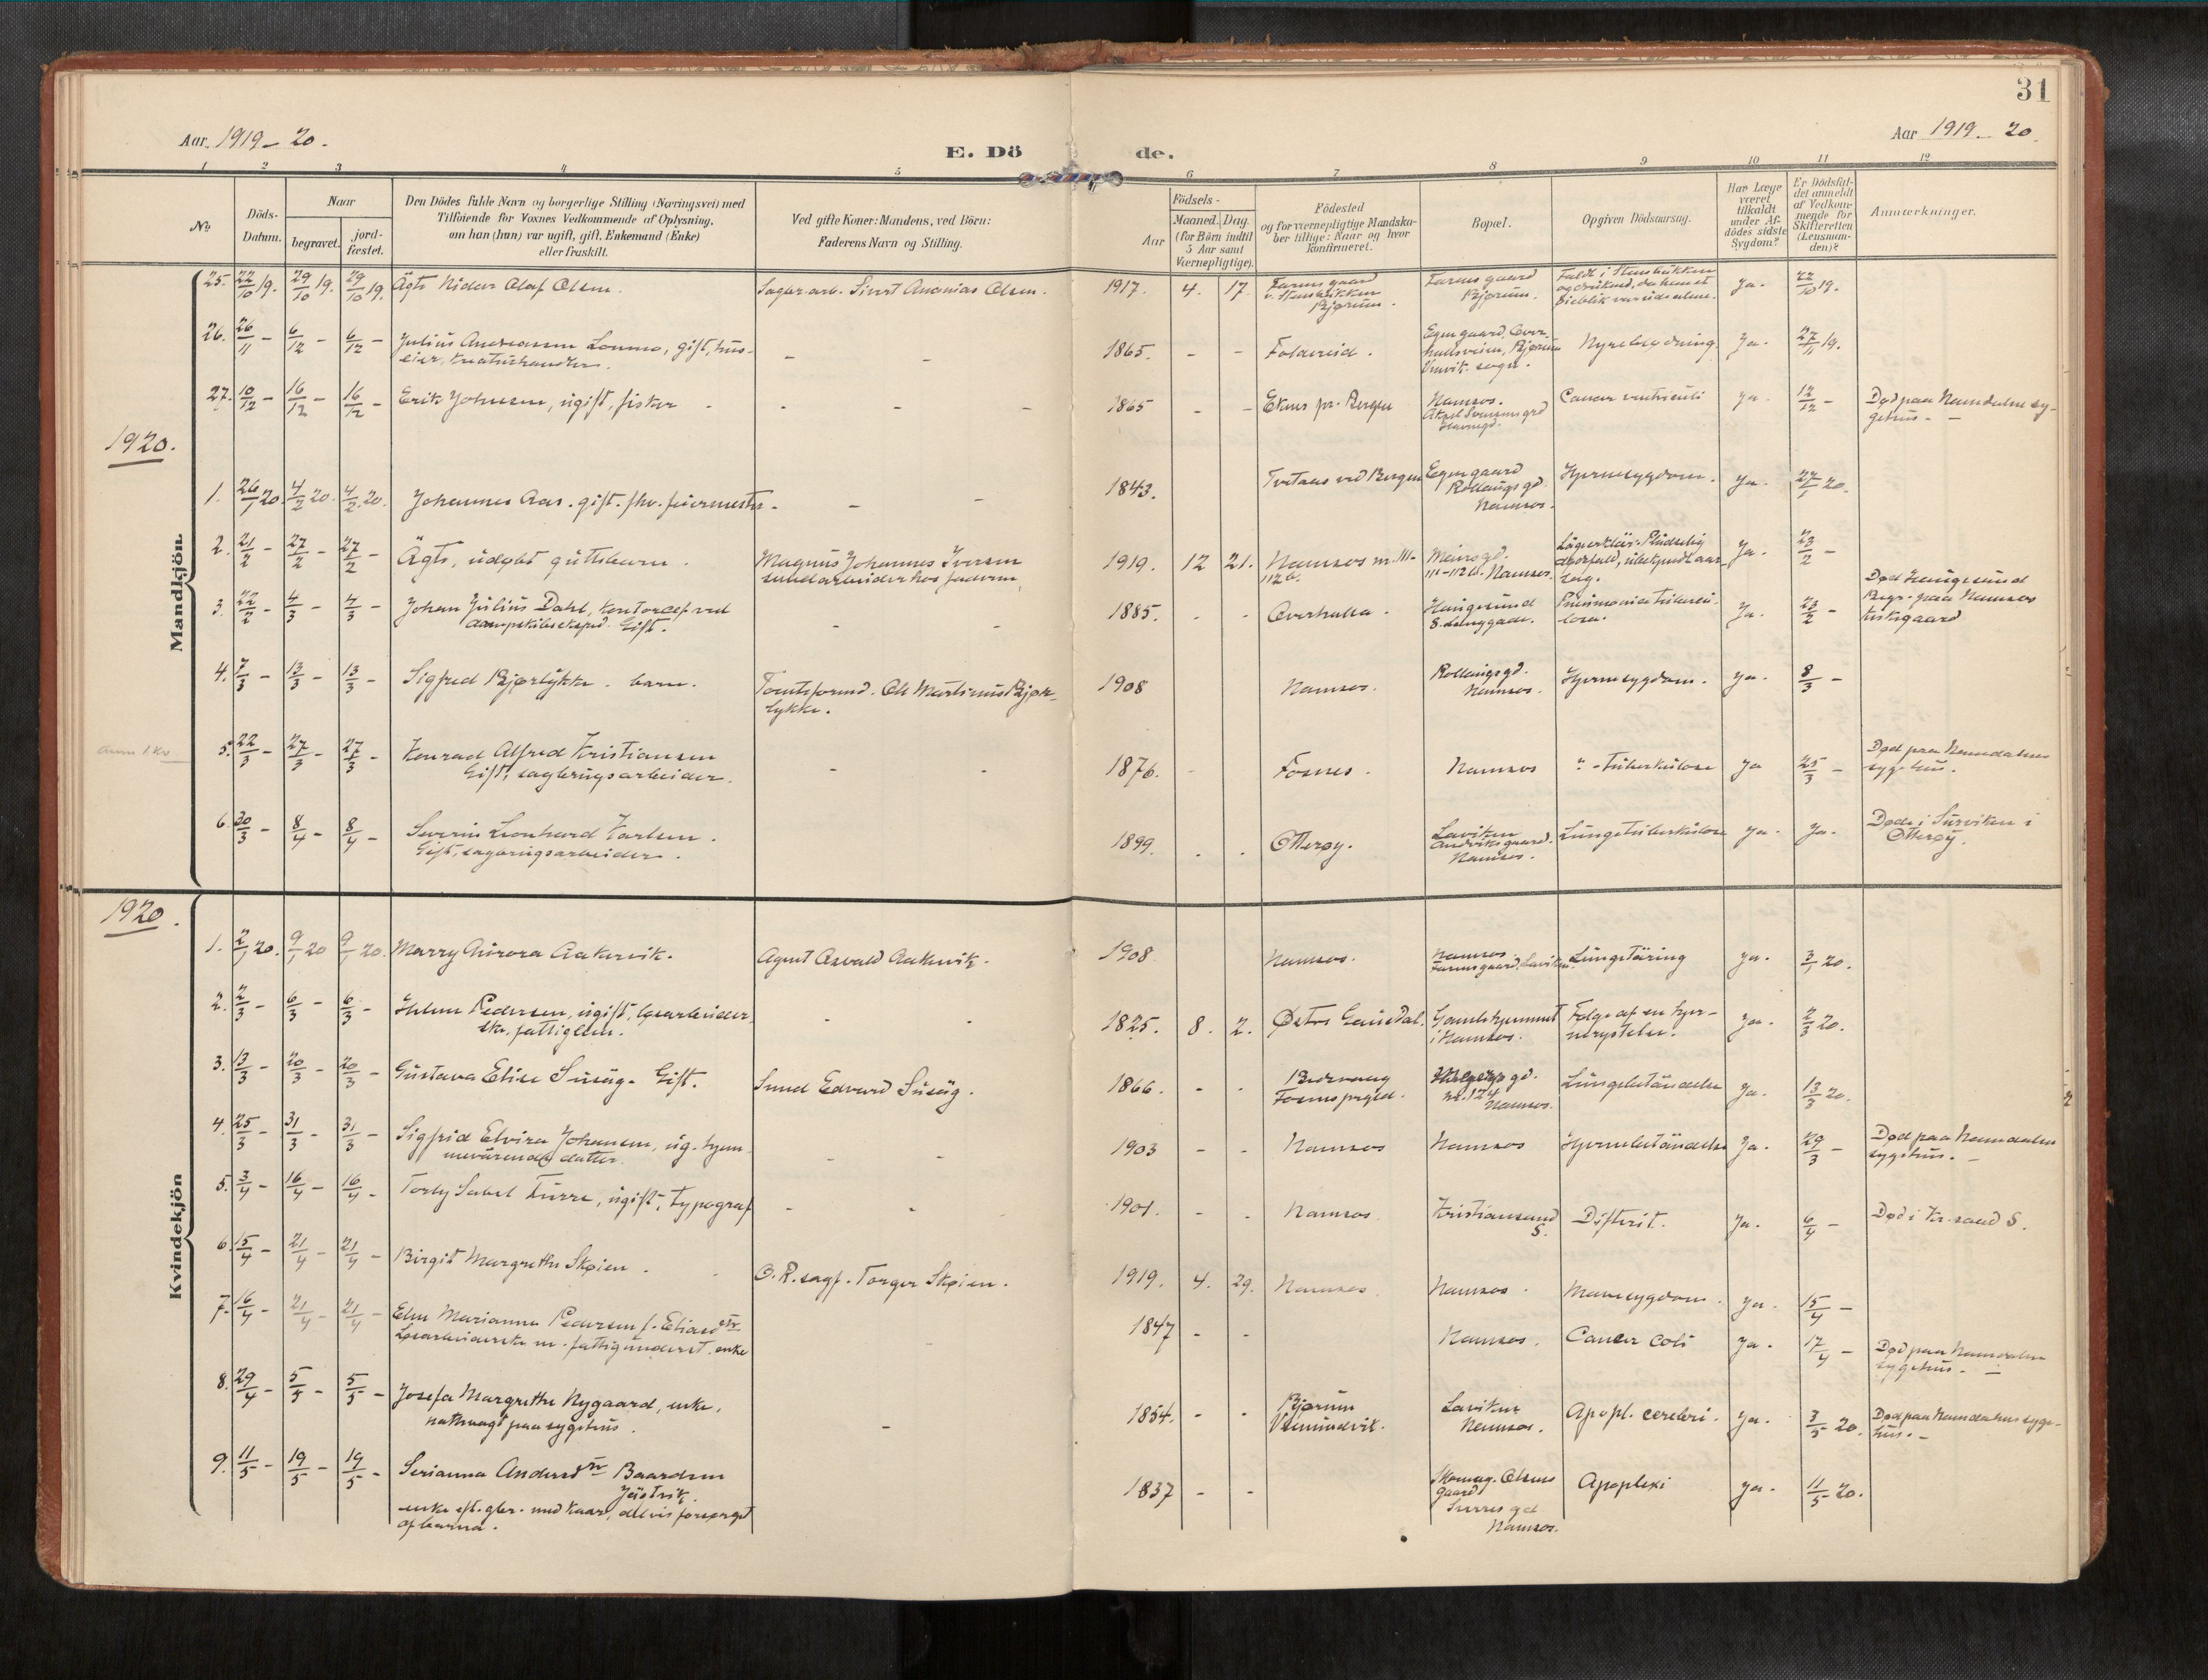 31
Aar 1919 - 20.
Aar 1919 - 20.
E. Dö de.
1 2 3 4 5 6 7 8 9 10 11 12
No
Döds-Datum.
Naar
begravet.
jord-fæstet.
Den Dödes fulde Navn og borgerlige Stilling (Næringsvei) med
Tilföiende for Voxnes Vedkommende af Oplysning,
om han (hun) var ugift, gift, Enkemand (Enke)
eller fraskilt.
Ved gifte Koner: Mandens, ved Börn:
Faderens Navn og Stilling.
Födsels-
Aar
Maaned. Dag.
(for Börn indtil
5 Aar samt
Værnepligtige).
Födested
og for værnepligtige Mandska-
ber tillige: Naar og hvor
konfirmeret.
Bopæl.
Opgiven Dödsaarsag.
Har Læge
været
tilkaldt
under Af-
dödes sidste
Sygdom?
Er Dödsfal-
det anmeldt
af Vedkom-
mende for
Skifteretten
(Lensman-
den)?
Anmærkninger.
Mandkjön.
25. 22/10 19. 29/10 19. 29/10 19. Ägte Nidar Olaf Olsen. Sagbr.arb. Sivert Ananias Olsen. 1917. 4. 17. Bjørum. Bjørum. Ja. 22/10 19.
26. 26/11 - 6/12 - 6/12 - Julius Andreassen Lommo, gift, hus-
eier, - - 1865. - - Foldereid. Egen gaard, Bjørum
Vemvik sogn. Nyreblødning. Ja. 27/11 19.
27. 10/12 - 16/12 - 16/12 - Erik Johnsen, ugift, fisker - - - 1865 - - pr. Bergen Namsos.
Havnegd. Cancer ventriculi ja. 12/12 - Død paa Namdalens sy-
gehus. -
1920.
1. 26/1 20. 4/2 20. 4/2 20. Johannes Aas. gift. fhv. - - 1843. ved Bergen Egen gaard
Namsos. Hjernesygdom. Ja. 27/1 20.
2. 21/2 - 27/2 - 27/2 - Ägte, udøbt guttebarn. Magnus Johannes Iversen
hos faderen. 1919. 12 21. Namsos nr. 111-
112b. 111-112b. Namsos. Lägeerklär. Pludselig
dødsfald, ubekjendt aar-
sag. Ja. 23/2 -
3. 22/2 - 4/3 - 4/3 - Johan Julius Dahl, kontorchef ved
dampskibseksped. Gift. - - 1885. - - Overhalla. Haugesund Ja. 23/2 - Død Haugesund
Begr. paa Namsos
kirkegaard
4. 7/3 - 13/3 - 13/3 - Sigfred Bjørlykke. barn. Ole Martinus Bjør-
lykke. 1908 Namsos. Namsos. Hjernesygdom. ja. 8/3 -
5. 22/3 - 27/3 - 27/3 - Konrad Alfred Kristiansen
Gift, sagbrugsarbeider. - - 1876. - Fosnes. Namsos - tuberkulose ja 25/3 - Død paa Namdalens
sygehus.
6. 30/3 - 8/4 - 8/4 - Severin Leonhard Karlsen.
Gift, sagbrugsarbeider. 1899. . . Otterøy. Laviken
Namsos. Lungetuberkulose ja. Ja. Døde i Surviken i
Otterøy.
1920.
Kvindekjön
1. 2/1 20. 9/1 20 9/1 20. Marry Aurora Aakervik. Agent Osvald Aakervik. 1908 Namsos. Namsos
Laviken. Lungetäring ja. 3/1 20.
2. 2/3 - 6/3 - 6/3 - Pedersen, ugift, løsarbeider-
ske, fattiglem. - - 1825. 8. 2. Østre Gausdal. Gamlehjemmet
i Namsos. Følge af en hjer-
nerystelse. ja. 2/3 20.
3. 13/3 - 20/3 - 20/3 - Gustava Elise Susäg. Gift. Smed Edvard Susäg. 1866 - -
Fosnes prgjeld. gd.
nr. 124
Namsos. Lungebetändelse Ja. 13/3 20.
4. 25/3 - 31/3 - 31/3 - Sigfrid Elvira Johansen, ug. hjem-
meværende datter. - - 1903 - - Namsos Namsos Hjernebetändelse Ja. 29/3 - Død paa Namdalens
sygehus. -
5. 3/4 - 16/4 - 16/4 - Sabel Furre, ugift, typograf - - 1901. - - Namsos Kristiansand
S. Difterit. Ja. 6/4 - Død i Kr.sand S.
6. 15/4 - 21/4 - 21/4 - Birgit Margrethe Skøien. O.R.sagf. Torger Skøien. 1919. 4. 29. Namsos Namsos. Mavesygdom. Ja. 15/4 -
7. 16/4 - 21/4 - 21/4 - Marianna Pedersen f. Eliasdtr
Løsarbeiderske m. fattigunderst. enke - 1847 - - Namsos. Cancer coli Ja. 17/4 - Død paa Namdalens
sygehus. -
8. 29/4 - 5/5 - 5/5 - Josefa Margrethe Nygaard, enke,
nattevagt paa sygehus. - 1854. - - Bjørum
Vemundvik. Laviken
Namsos. Apopl. cerebri. ja. 3/5 20. Død paa Namdalens syge-
hus. -
9. 11/5 - 19/5 - 19/5 - Serianna Andersdtr Baardsen
enke eft. gbr. med kaar, delvis forsørget
af barna. 1837 - - Skomag. Olsens
gaard
Sverres gd
Namsos. Apoplexi ja. 11/5 20.